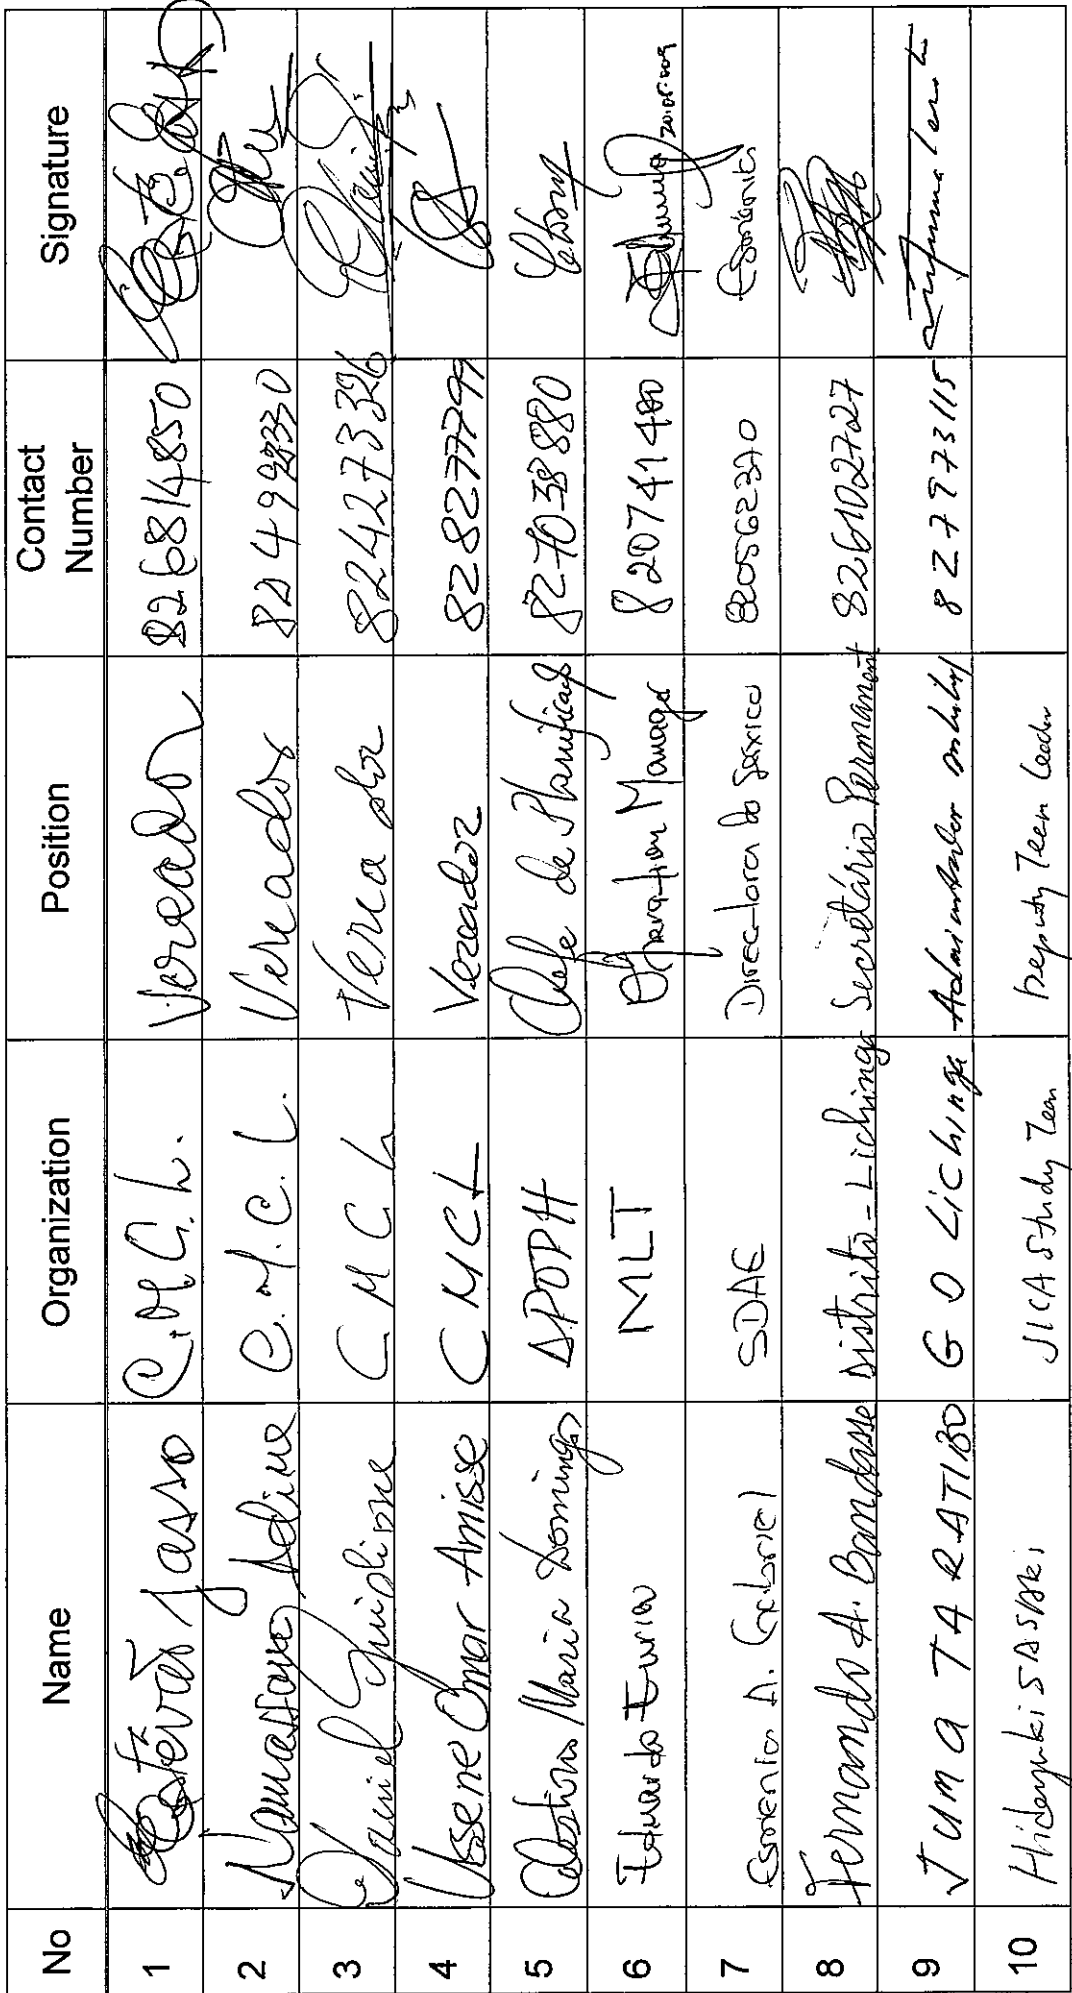 No Name Organization Position Contact Number Signature
1 Estêvão Jasso C.M.C.L. Vereador 826814850
2 C.M.C.L. Vereador
3 Daniel C M C L Vereador 824273326
4 Ussene Omar Amisse C M C L Vereador 828277799
5 Maria Domingos DPOPH Chefe de Planificação 827038880
6 Eduardo Furia MLT Operation Manager 820741480 20.05.2009
7 Esmenia A. Gabriel SDAE Directora do Serviço 820562370
8 Fernando A. Bandasse Distrito-Lichinga Secretário Permanent 826102727
9 Juma TARATIBO G D Lichinga 827973115
10 Hideyuki SASAKI JICA Study Team Deputy Team Leader